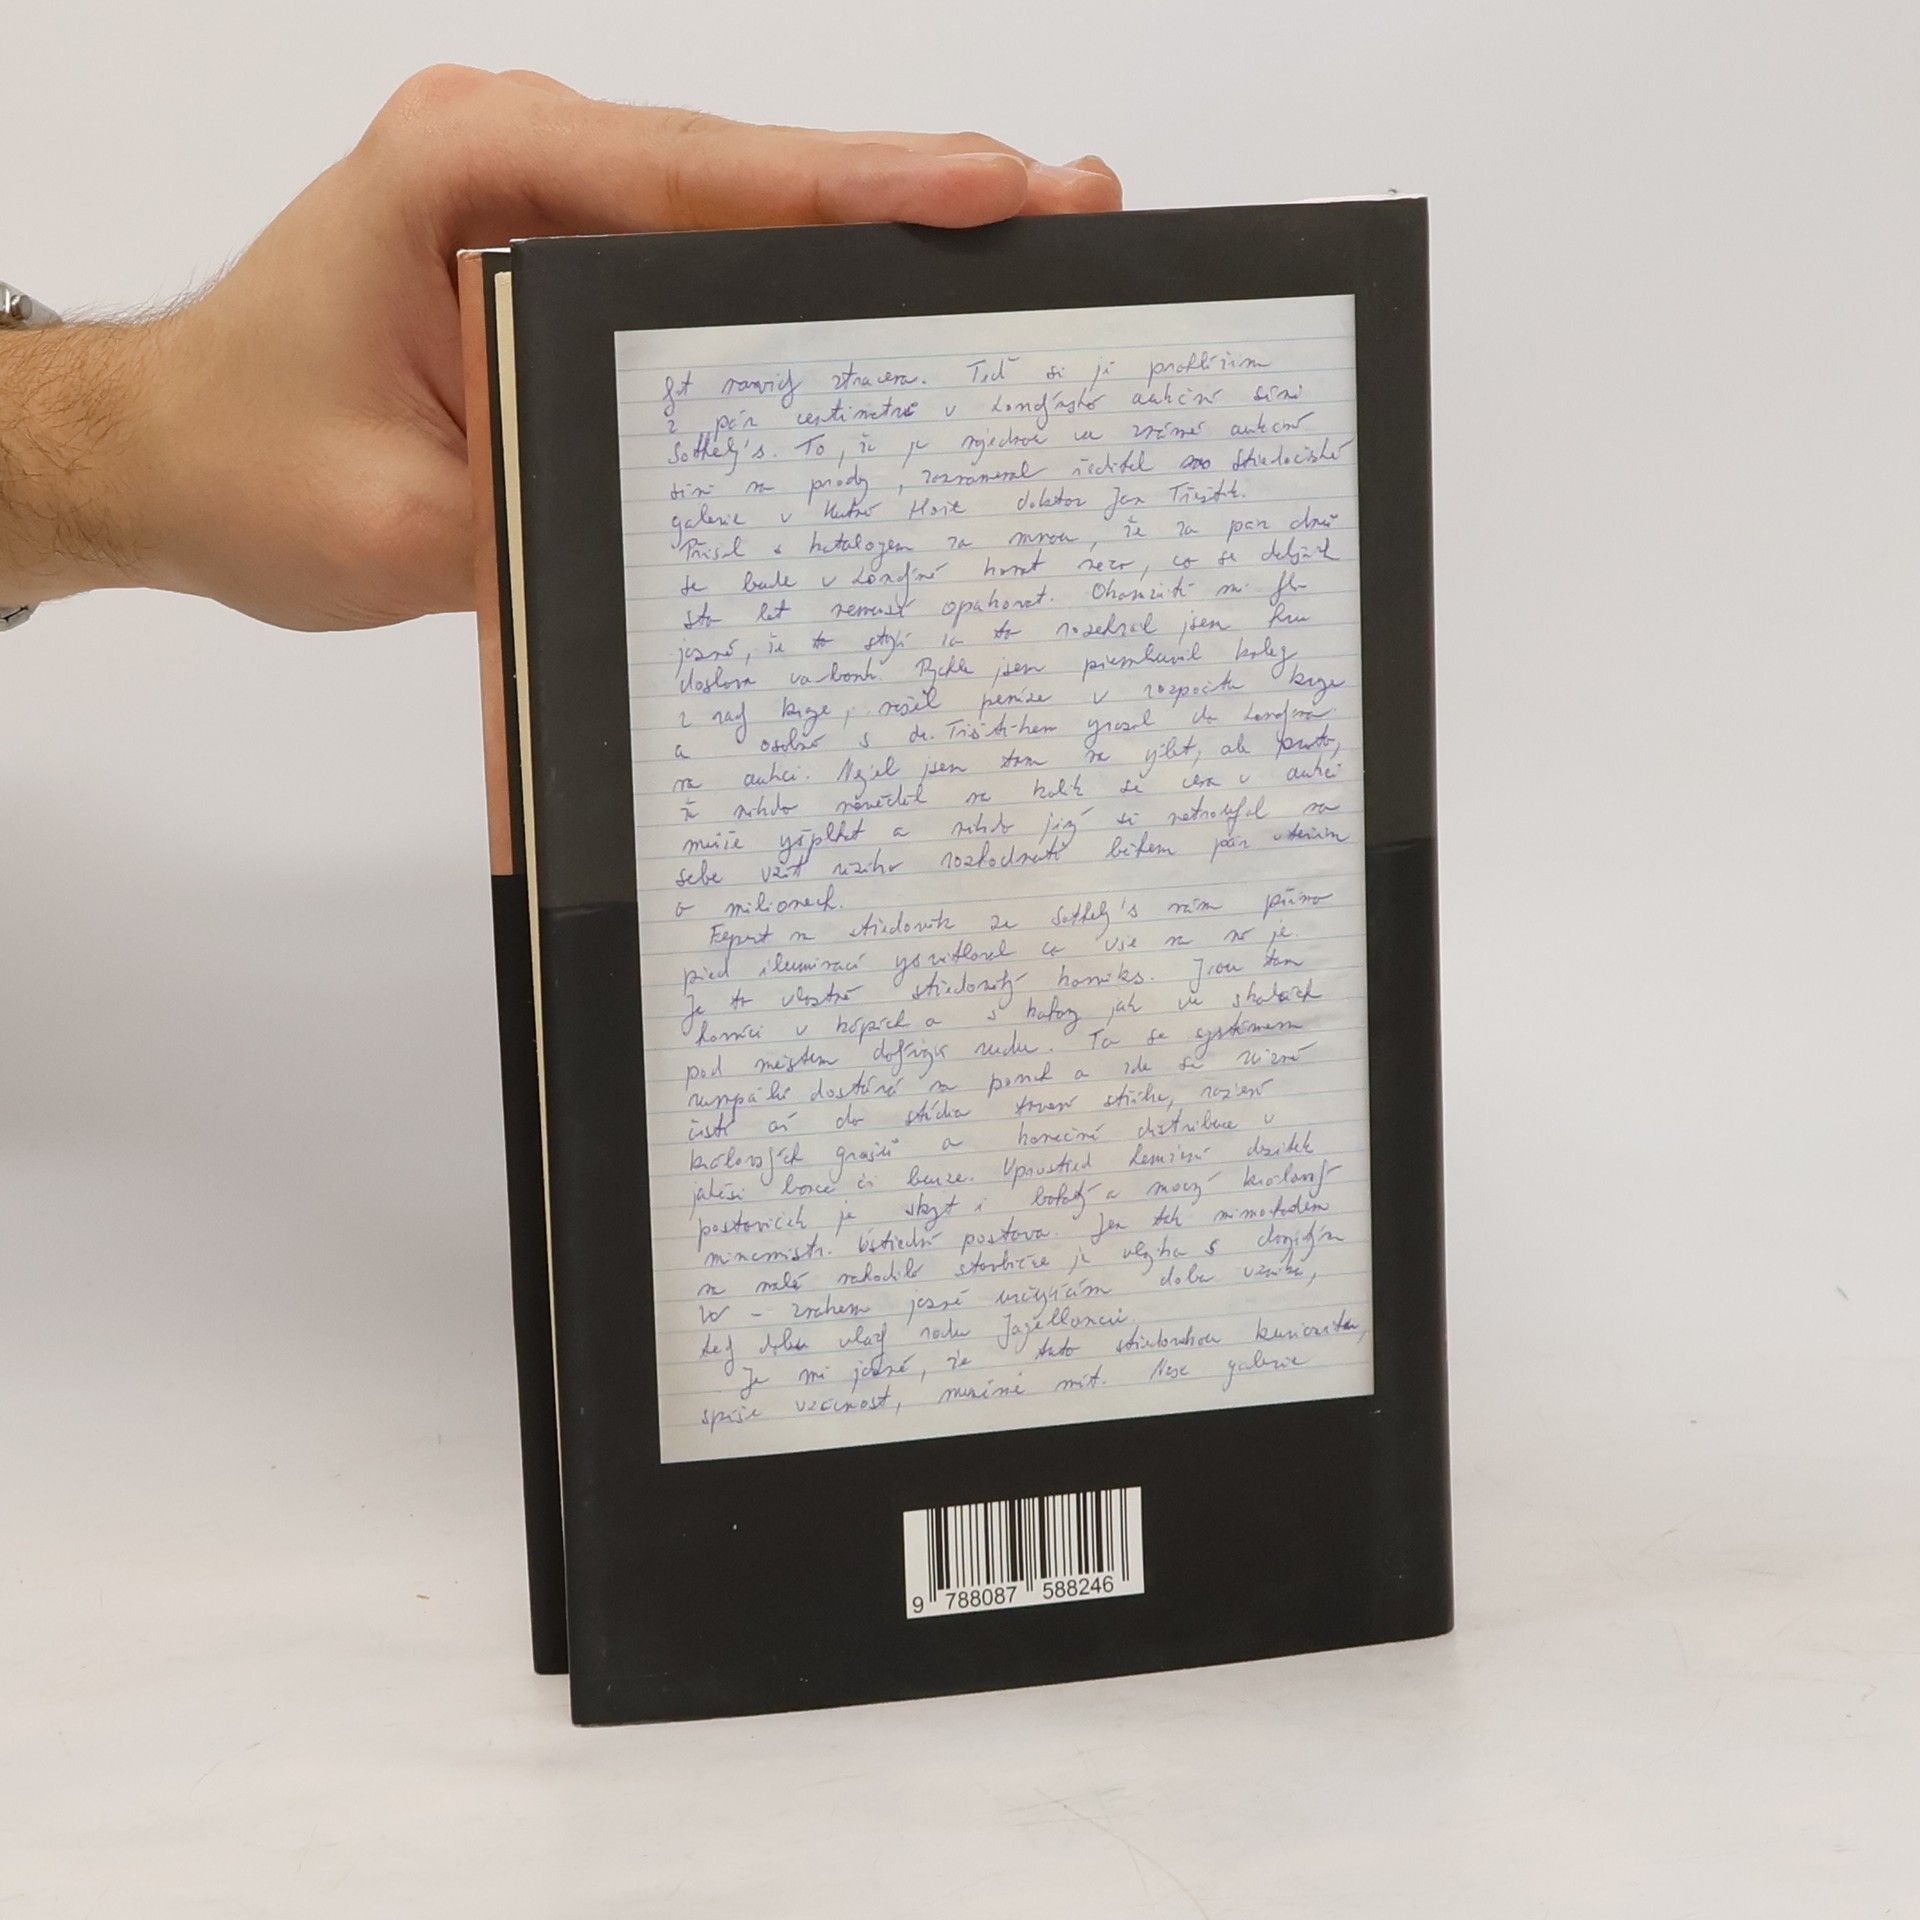 být navždy ztracena. Teď si ji prohlížím
z pár centimetrů v Londýnské aukční síni
Sotheby's. To, že je najednou ve známé aukční
síni na prodej, zaznamenal ředitel Středočeské
galerie v Kutné Hoře doktor Jan Třeštík.
Přišel s katalogem za mnou, že za pár dnů
se bude v Londýně konat něco, co se dalších
sto let nemusí opakovat. Okamžitě mi bylo
jasné, že to stojí za to rozehrál jsem hru
doslova va-bank. Rychle jsem přemluvil kolegy
z rady kraje, našel peníze v rozpočtu kraje
a osobně s dr. Třeštíkem vyrazil do Londýna
na aukci. Nejel jsem tam na výlet, ale proto,
že nikdo nevěděl na kolik se cena v aukci
může vyšplhat a nikdo jiný si netroufal na
sebe vzít tíhu rozhodnutí během pár vteřin
o milionech.
Expert na středověk ze Sotheby's nám přímo
před iluminací vysvětloval co vše na ní je.
Je to vlastně středověký komiks. Jsou tam
horníci v kápích a s kahany jak ve skalách
pod městem dobývají rudu. Ta se systémem
rumpálů dostává na povrch a zde se různě
čistí až do stádia tavení stříbra, ražení
královských grošů a konečné distribuce v
jakési burze či burze. Uprostřed desítek
postaviček je skryt i bohatý a mocný královský
mincmistr. Ústřední postava. Jen tak mimochodem
na malé stavbičce je vlajka s dvojitým
W – znakem jasně určujícím dobu vzniku,
tedy dobu vlády rodu Jagellonců.
Je mi jasné, že tuto středověkou kuriozitu,
spíše vzácnost, musíme mít. Naše galerie
9 788087 588246